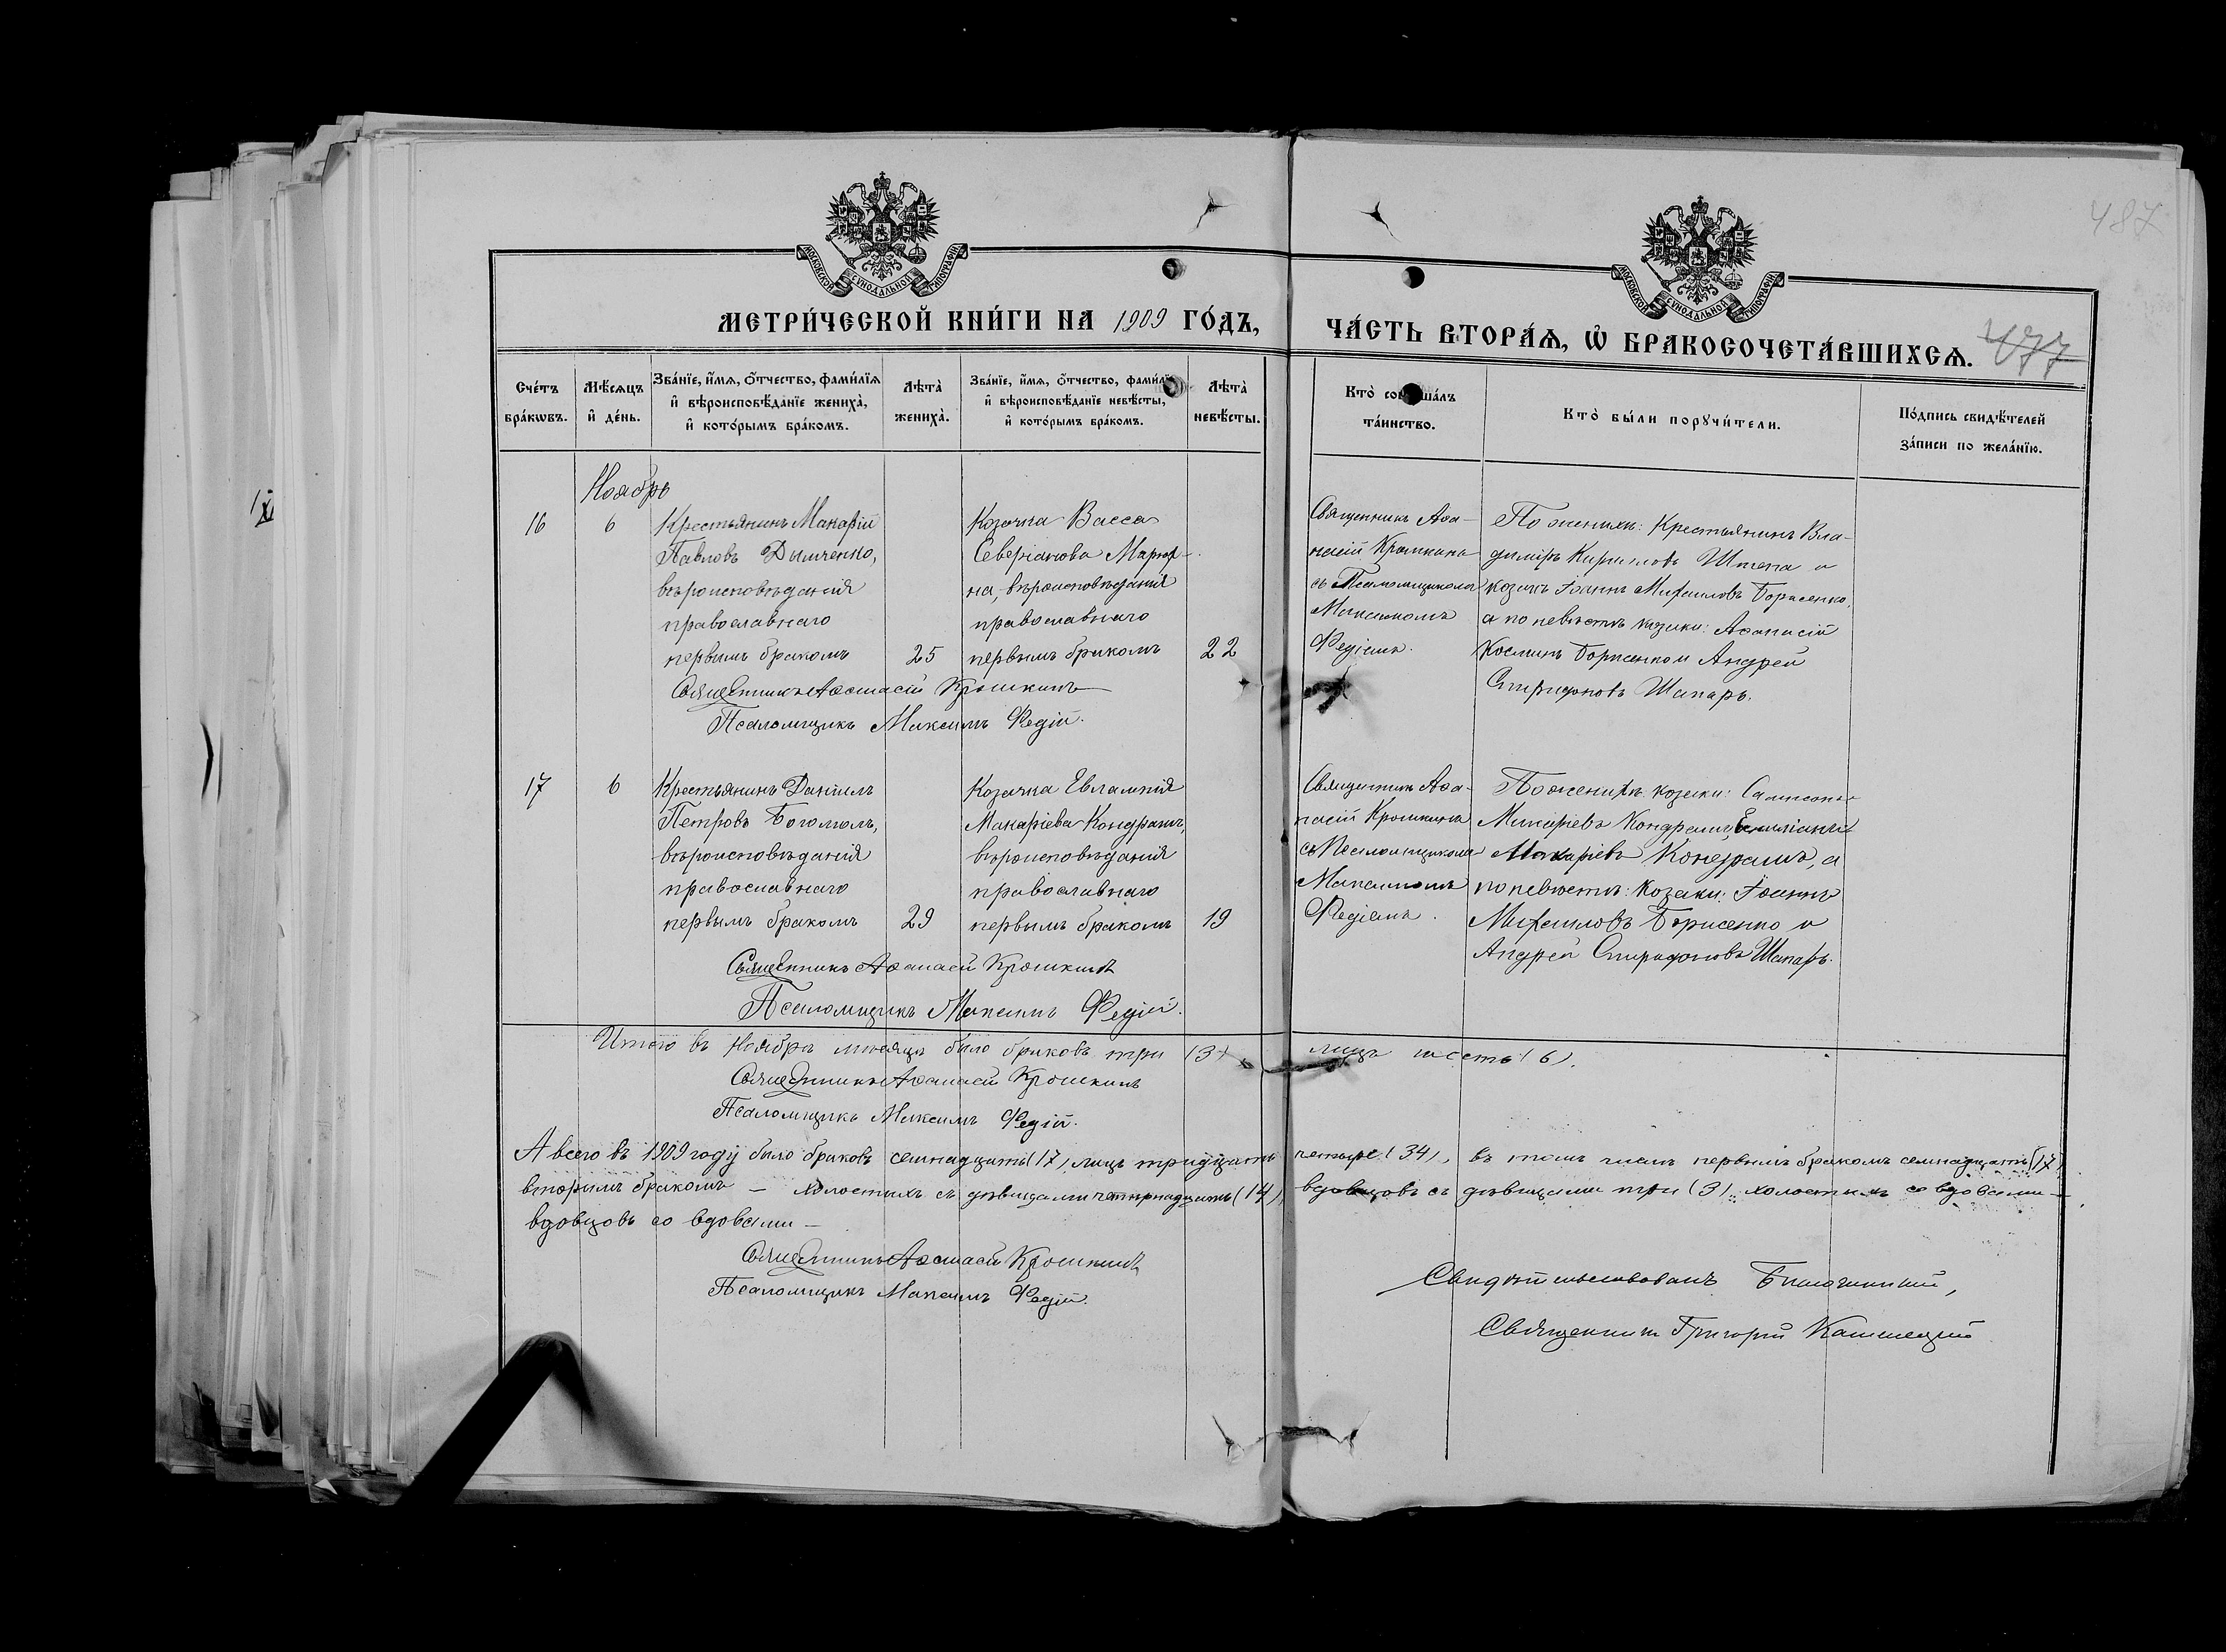 487
МОСКОВСКОЙ СѴНОДАЛЬНОЙ ТИПОГРАФІИ
МОСКОВСКОЙ СѴНОДАЛЬНОЙ ТИПОГРАФІИ
МЕТРИ́ЧЕСКОЙ КНИ́ГИ НА 1909 ГО́ДЪ,
ЧА́СТЬ ВТОРА́Ѧ, Ѡ҆ БРАКОСОЧЕТА́ВШИХСѦ.
477
Сче́тъ бра́кωвъ.
Мѣ́сяцъ и҆ де́нь.
Зва́нїе, и҆́мя, ѻ҆́тчество, фами́лїя
и҆ вѣроисповѣ́данїе жениха̀,
и҆ кото́рымъ бра́комъ.
Лѣта̀ жениха̀.
Зва́нїе, и҆́мя, ѻ҆́тчество, фами́лїя
и҆ вѣроисповѣ́данїе невѣ́сты,
и҆ кото́рымъ бра́комъ.
Лѣта̀ невѣ́сты.
Кто̀ соверша́лъ
та́инство.
Кто̀ бы́ли порꙋчи́тели.
По́дпись свидѣ́телей
за́писи по жела́нїю.
Ноябрь
16
6
Крестьянинъ Макарій
Павловъ Дымченко,
вѣроисповѣданія
православнаго
первымъ бракомъ
25
Козачка Васса
Северіанова
на, вѣроисповѣданія
православнаго
первымъ бракомъ
22
Священникъ Аѳа-
насій Крошкинъ
съ Псаломщикомъ
Максимомъ
Федіемъ.
По женихѣ: Крестьянинъ Вла-
диміръ Кирилловъ Шкепа и
козакъ Іоаннъ Михаиловъ Борисенко,
а по невѣстѣ козаки: Аѳанасій
Косминъ Борисенко и Андрей
Спиридоновъ Шапарь.
Священникъ Аѳанасій Крошкинъ
Псаломщикъ Максимъ Федій.
17
6
Крестьянинъ Даніилъ
Петровъ Богомолъ,
вѣроисповѣданія
православнаго
первымъ бракомъ
29
Козачка Евлампія
Макаріева Кондрашъ,
вѣроисповѣданія
православнаго
первымъ бракомъ
19
Священникъ Аѳа-
насій Крошкинъ
съ Псаломщикомъ
Максимомъ
Федіемъ.
По женихѣ козаки: Сампсонъ
Макаріевъ Кондрашъ, Емиліанъ
Макаріевъ Кондрашъ, а
по невѣстѣ: козаки: Іоаннъ
Михаиловъ Борисенко и
Андрей Спиридоновъ Шапарь.
Священникъ Аѳанасій Крошкинъ
Псаломщикъ Максимъ Федій.
Итого въ Ноябрѣ мѣсяцѣ было браковъ три (3) лицъ шесть (6).
Священникъ Аѳанасій Крошкинъ
Псаломщикъ Максимъ Федій.
А всего въ 1909 году было браковъ семнадцать (17), лицъ тридцать четыре (34), въ томъ числѣ первымъ бракомъ семнадцать (17)
вторымъ бракомъ — холостыхъ съ дѣвицами четырнадцать (14), вдовцовъ съ дѣвицами три (3), холостыхъ со вдовами —
вдовцовъ со вдовами —
Священникъ Аѳанасій Крошкинъ
Псаломщикъ Максимъ Федій.
Свидѣтельствовалъ Благочинный,
Священникъ Григорій